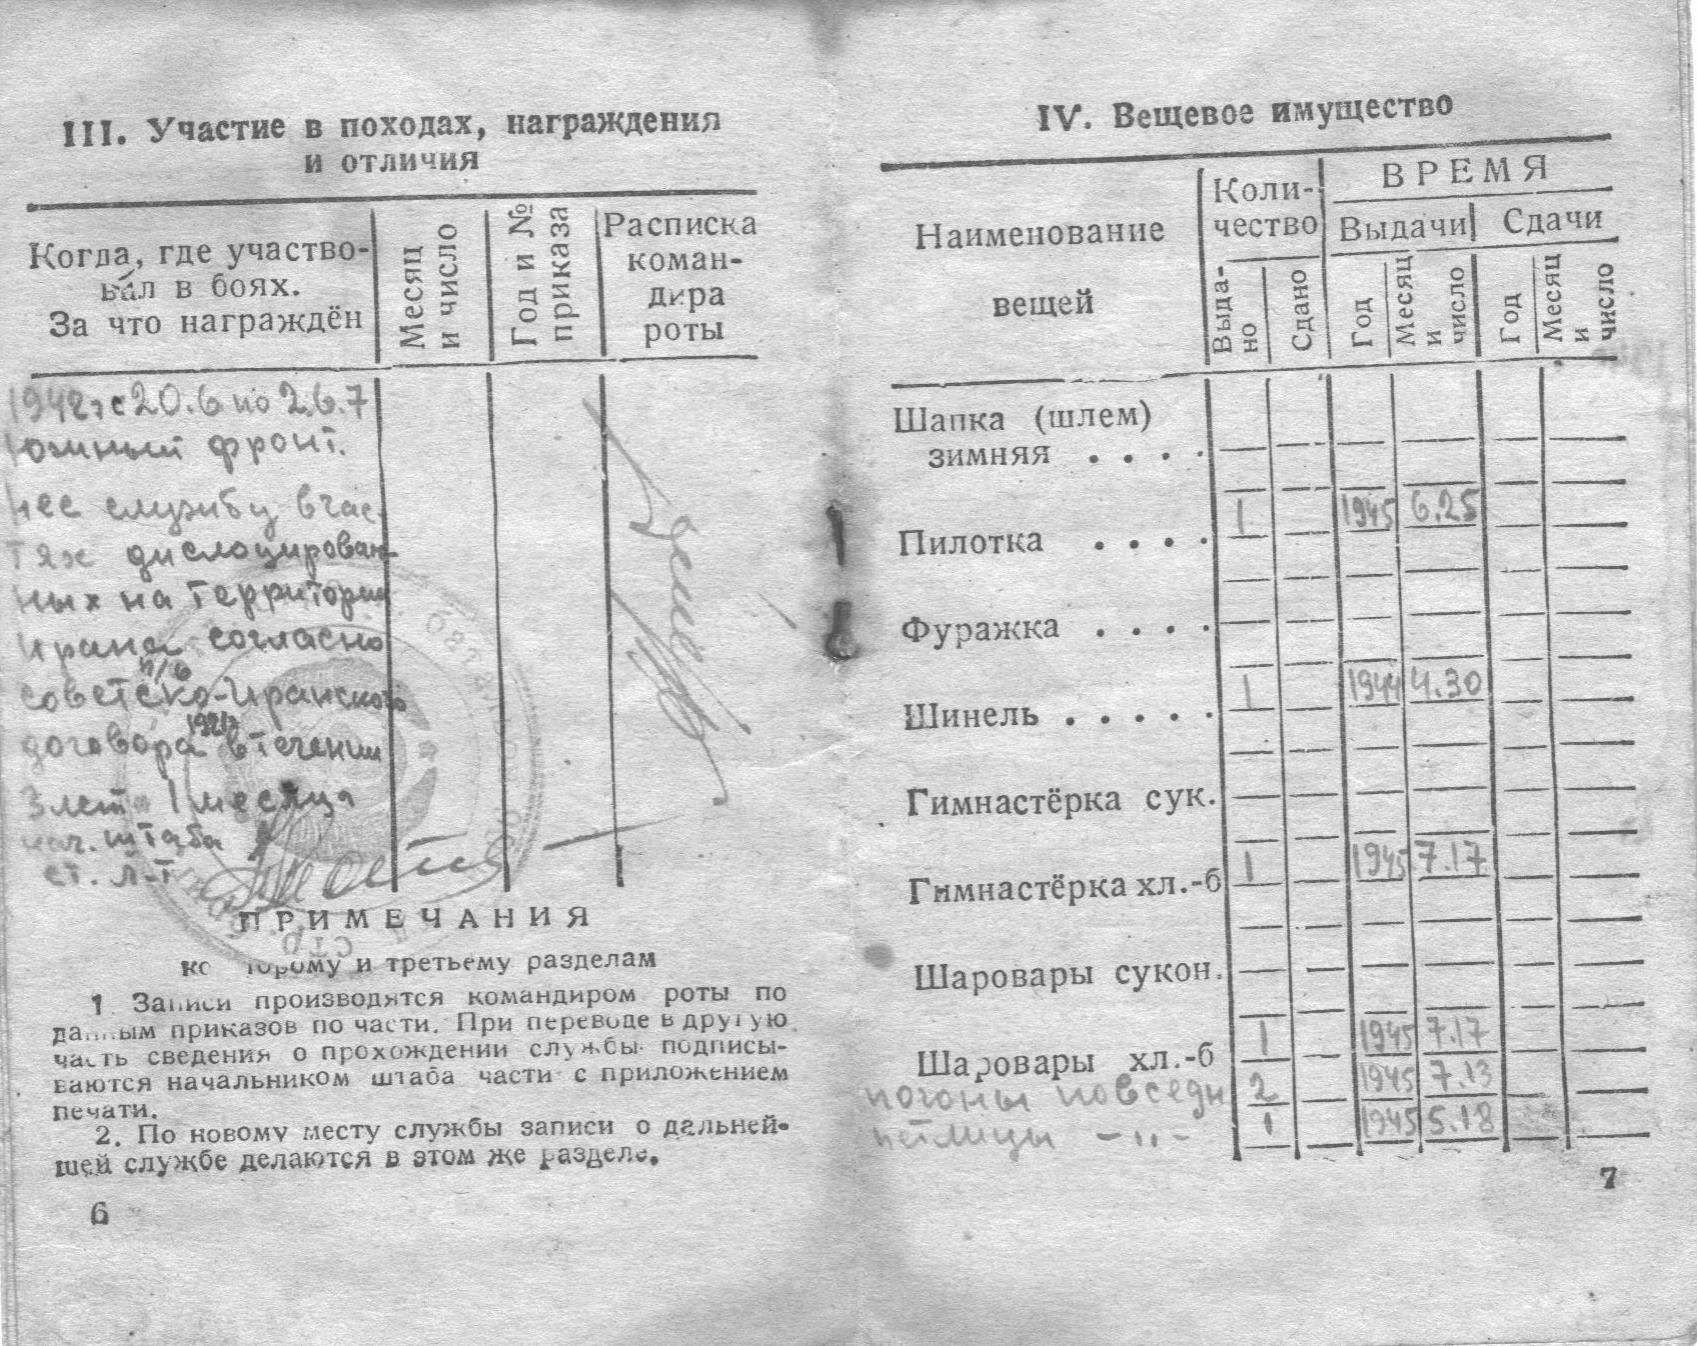 III. Участие в походах, награждения
и отличия
Когда, где участво-
вал в боях.
За что награждён
Месяц
и число
Год и №
приказа
Расписка
коман-
дира
роты
с 20.6 по
южный фронт.
нес службу в час-
тях дислоцирован-
ных на территории
Ирана согласно
советско-Иранского
договора в течении
3 лет 1 месяца
нач. штаба
ст. л-т
ПРИМЕЧАНИЯ
ко второму и третьему разделам
1. Записи производятся командиром роты по
данным приказов по части. При переводе в другую
часть сведения о прохождении службы подписы-
ваются начальником штаба части с приложением
печати.
2. По новому месту службы записи о дальней-
шей службе делаются в этом же разделе.
6
IV. Вещевое имущество
Наименование
вещей
Коли-
чество
ВРЕМЯ
Выдачи Сдачи
Выда-
но
Сдано
Год
Месяц
и
число
Год
Месяц
и
число
Шапка (шлем)
зимняя . . . .
Пилотка . . . . 1 1945 6.25
Фуражка . . . .
Шинель . . . . . 1 1944 4.30
Гимнастёрка сук.
Гимнастёрка хл.-б 1 1945 7.17
Шаровары сукон.
Шаровары хл.-б 1 1945 7.17
погоны повседн 2 1945 7.13
петлицы -"- 1 1945 5.18
7